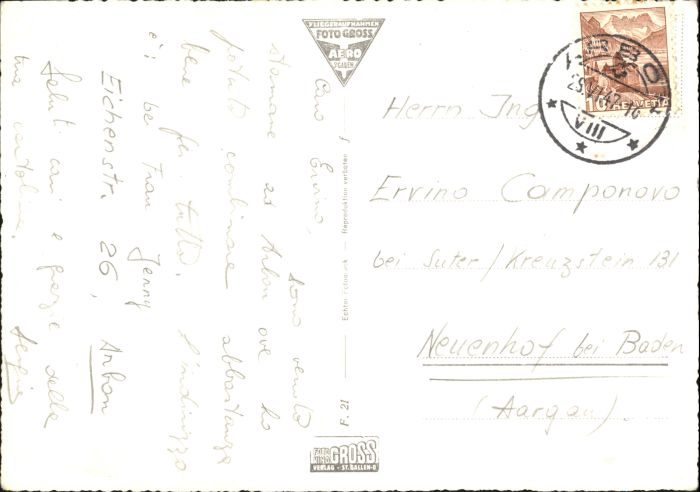 Caro Ervino,
sono venuto
stamane ad Arbon ove ho
potuto combinare abbastanza
bene per tutto. L'indirizzo
è: bei Frau Jenny
Eichenstr. 26, Arbon
Saluti cari e grazie della
tua cartolina.
Sergio
FLIEGERAUFNAHMEN
FOTO GROSS
AERO
ST. GALLEN
Echter Fotodruck — Reproduktion verboten
F. 21
GROSS
VERLAG - ST. GALLEN-O
HELVETIA
10
ARBON
VIII
Herrn Ing
Ervino Camponovo
bei Suter / Kreuzstein 131
Neuenhof bei Baden
(Aargau)